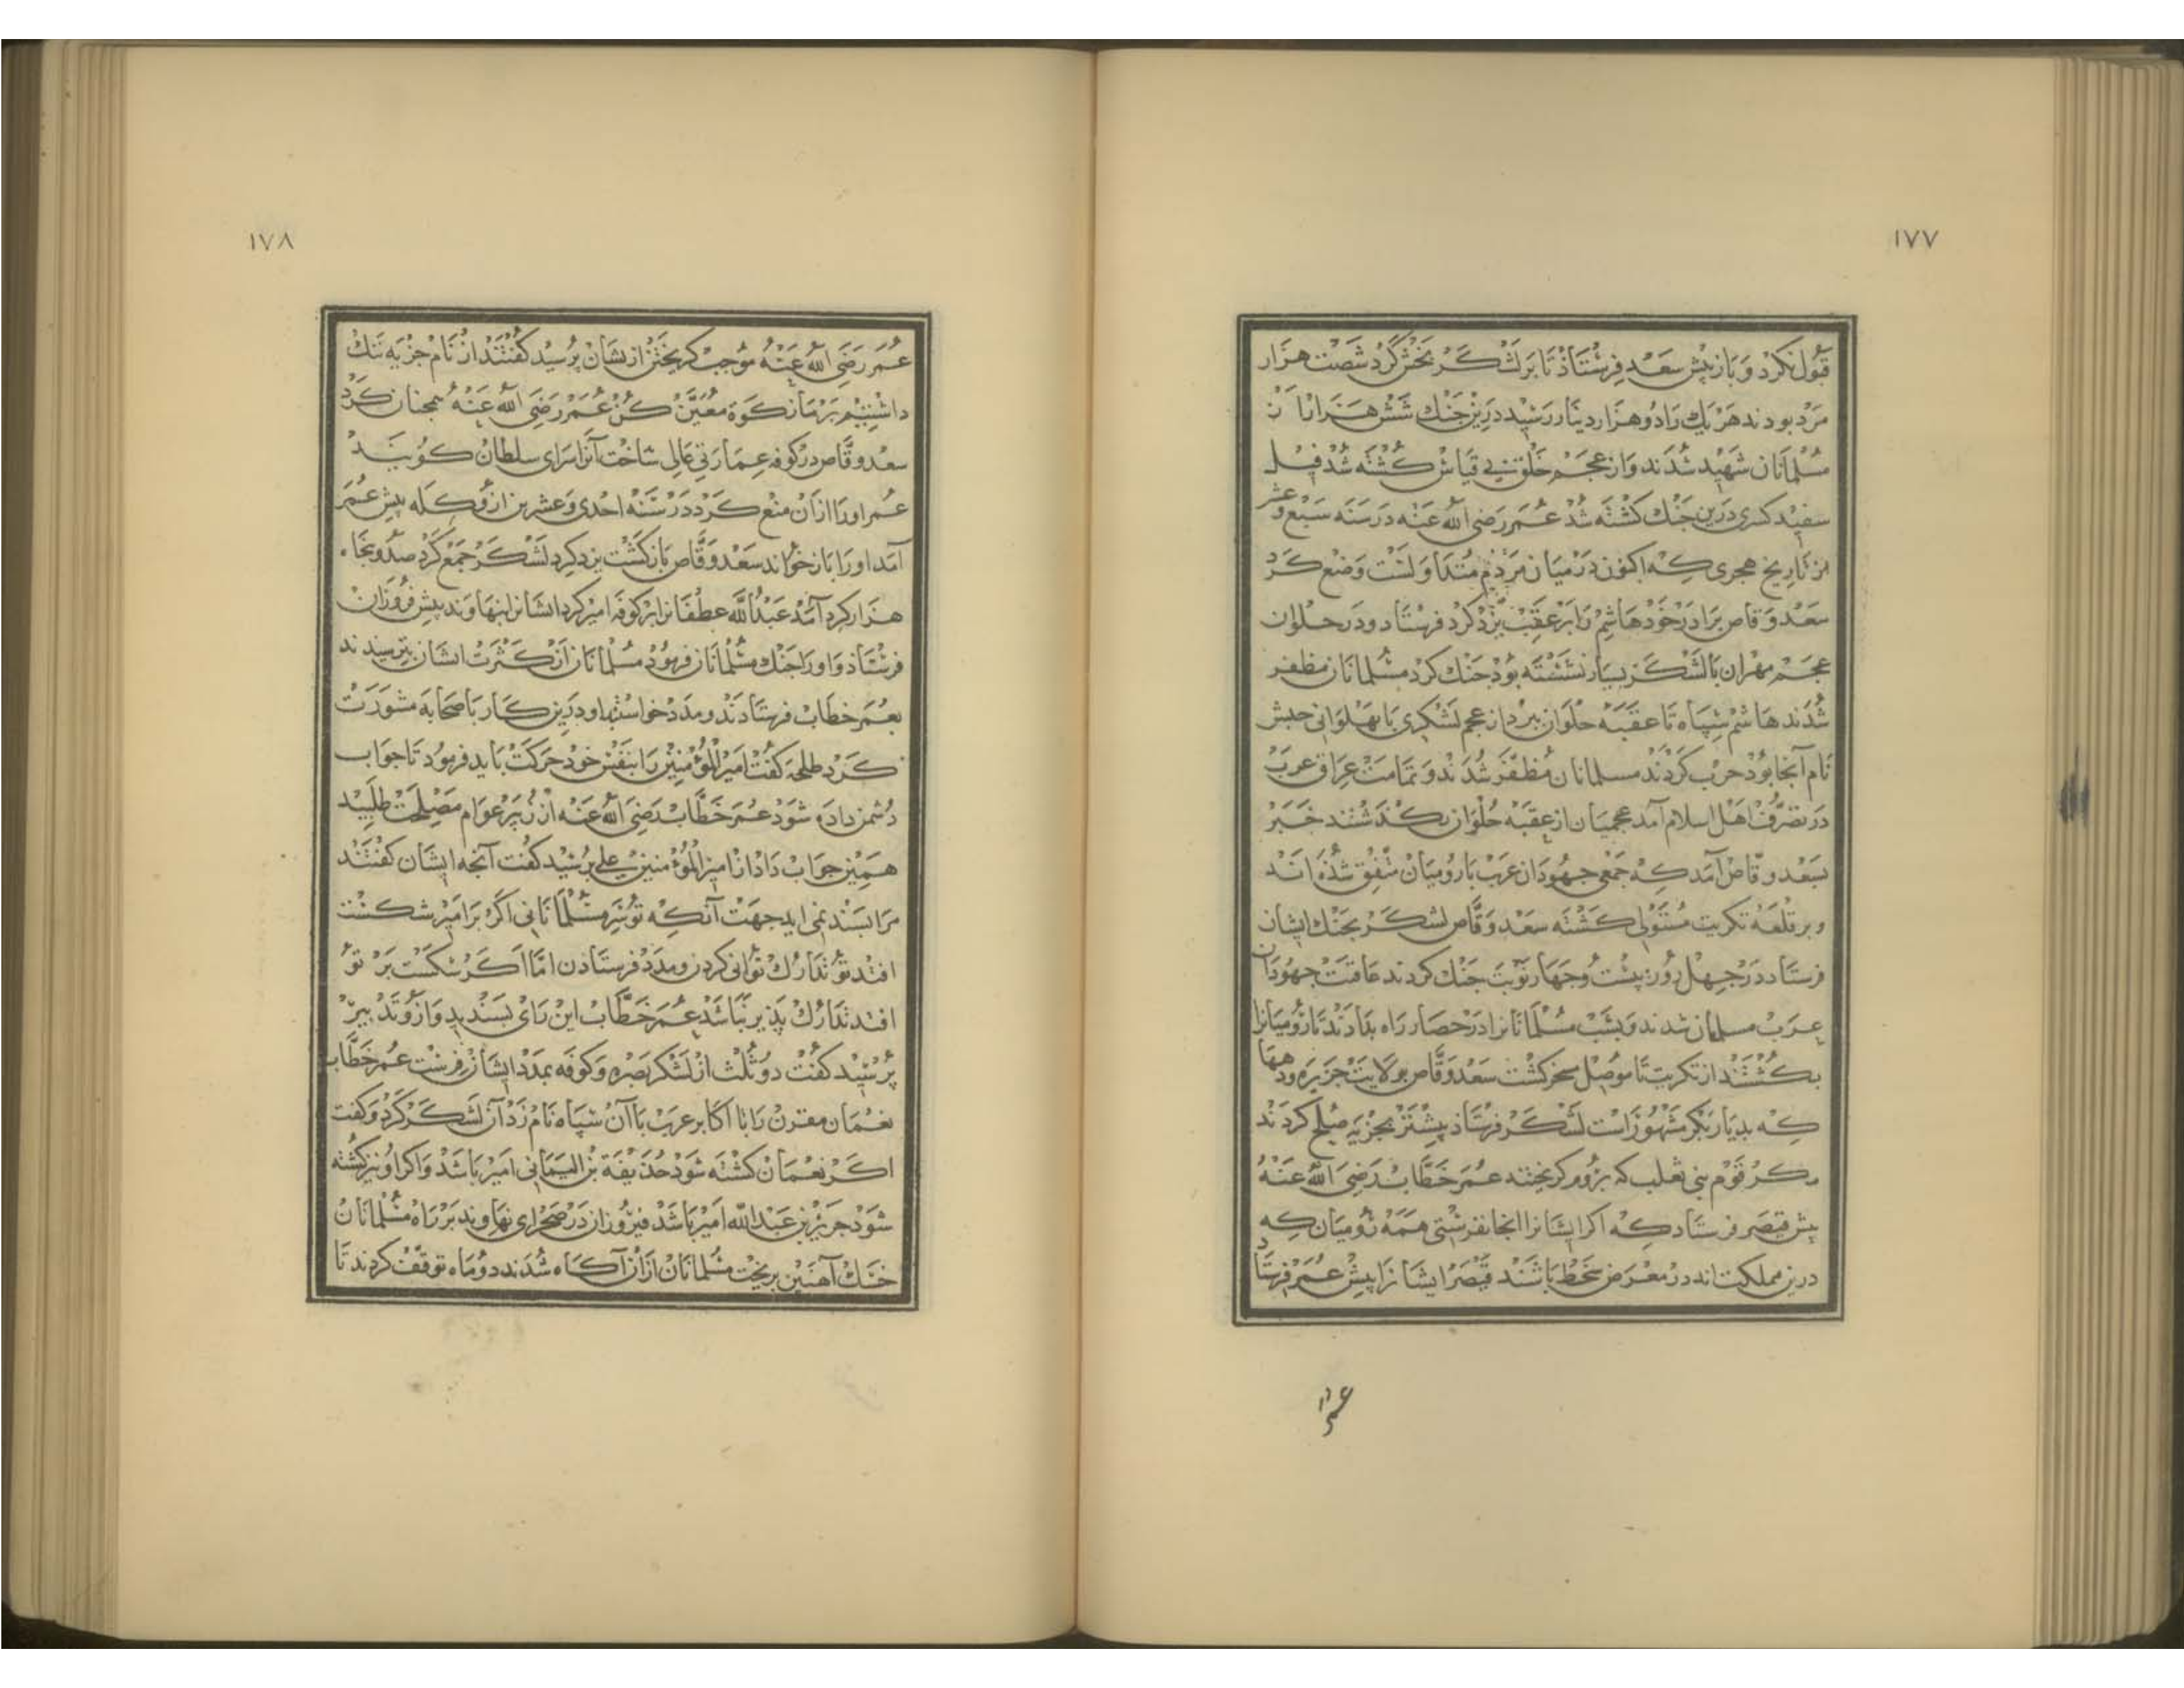 ۱۷۷
قبول نکرد و باز پیش سعد فرستاد تا بر لشکر بخش کرد شصت هزار
مرد بودند هر یك را دو هزار دینار رسید درین جنك شش هزار از
مسلمانان شهید شدند و از عجم خلق بی قیاس کشته شد فیل
سفید کسری درین جنك کشته شد عمر رضی الله عنه در سنه سبع و عشر
من تاریخ هجری که اکنون در میان مردم متداولست وضع کرد
سعد وقاص برادر خود هاشم را بر عقب یزدکرد فرستاد و در حلوان
عجم مهران با لشکر بسیار نشسته بود جنك کرد مسلمانان مظفر
شدند هاشم سپاه تا عقبه حلوان ببرد از عجم لشکری با پهلوانی حبش
نام آنجا بود حرب کردند مسلمانان مظفر شدند و تمامت عراق عرب
در تصرف اهل اسلام آمد عجمیان از عقبه حلوان بکذشتند خبر
بسعد وقاص آمد که جمعی جهودان عرب با رومیان متفق شده اند
و بر قلعه تکریت مستولی کشته سعد وقاص لشکر بجنك ایشان
فرستاد در چهل روز بیست و چهار نوبت جنك کردند عاقبت جهودان
عرب مسلمان شدند و بشب مسلمانانرا در حصار راه بدادند تا رومیانرا
بکشتند از تکریت تا موصل مسخر کشت سعد وقاص بولایت جزیره و دهها
که بدیار بکر مشهور است لشکر فرستاد بیشتر بجزیه صلح کردند
مکر قوم بنی تغلب که بروم کریختند عمر خطاب رضی الله عنه
پیش قیصر فرستاد که اکر ایشانرا اینجا نفرستی همه رومیان که
درین مملکت اند در معرض سخط باشند قیصر ایشانرا پیش عمر فرستاد
عمر
۱۷۸
عمر رضی الله عنه موجب کریختن ازیشان پرسید کفتند از نام جزیه ننك
داشتیم بر ما زکوة معین کن عمر رضی الله عنه همچنان کرد
سعد وقاص در کوفه عمارتی عالی ساخت آنرا سرای سلطان کویند
عمر او را از آن منع کرد در سنه احدی و عشرین ازو کله پیش عمر
آمد او را باز خواند سعد وقاص بازکشت یزدکرد لشکر جمع کرد صد و پنجاه
هزار کرد آمد عبدالله عطفانرا بر کوفه امیر کرد ایشانرا بنهاوند پیش فروزان
فرستاد و او را جنك مسلمانان فرمود مسلمانان از کثرت ایشان بترسیدند
بعمر خطاب فرستادند و مدد خواستند او درین کار با صحابه مشورت
کرد طلحه کفت امیرالمؤمنین را بنفس خود حرکت باید فرمود تا جواب
دشمن داده شود عمر خطاب رضی الله عنه از زبیر عوام مصلحت طلبید
همین جواب داد از امیرالمؤمنین علی پرسید کفت آنچه ایشان کفتند
مرا پسند نمی اید جهت آنکه تو سر مسلمانانی اکر بر امیر شکست
افتد تو تدارك توانی کردن و مدد فرستادن اما اکر شکست بر تو
افتد تدارك پذیر نباشد عمر خطاب این رای پسندید و ازو تدبیر
پرسید کفت دو ثلث از لشکر بصره و کوفه بمدد ایشان فرست عمر خطاب
نعمان مقرن را با اکابر عرب با آن سپاه نام زد آن لشکر کرد و کفت
اکر نعمان کشته شود حذیفة بن الیمانی امیر باشد و اکر او نیز کشته
شود جریر بن عبدالله امیر باشد فیروزان در صحرای نهاوند بر راه مسلمانان
خسك آهنین بریخت مسلمانان از آن آکاه شدند دو ماه توقف کردند تا